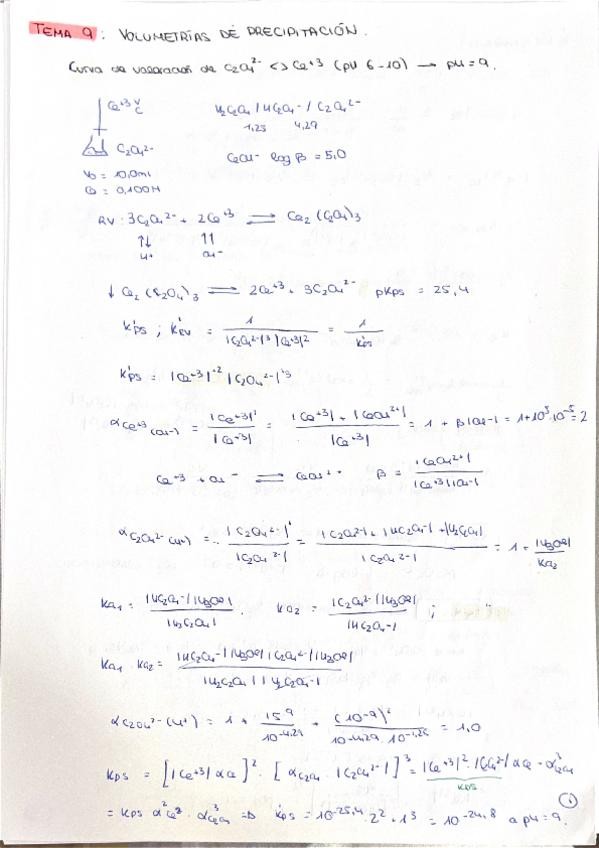 TEMA 9: VOLUMETRÍAS DE PRECIPITACIÓN.
Curva de valoración de C2O4²⁻ <-> Ce+3 (pH 6-10) → pH = 9.
Ce+3 V C
H2C2O4 / HC2O4⁻ / C2O4²⁻
1,25 4,29
C2O4²⁻
CeOH²⁺ log β = 5,0
V0 = 10,0ml
C0 = 0,100M
RV: 3C2O4²⁻ + 2Ce+3 ⇌ Ce2(C2O4)3
↑↓ ↑↑
H+ OH⁻
↓ Ce2(C2O4)3 ⇌ 2Ce+3 + 3C2O4²⁻ pKps = 25,4
K'ps ; K'RV = 1 / |C2O4²⁻|'³ |Ce+3|'² = 1 / K'ps
K'ps = |Ce+3|'² |C2O4²⁻|'³
αCe+3(OH⁻) = |Ce+3|' / |Ce+3| = |Ce+3| + |CeOH²⁺| / |Ce+3| = 1 + β|OH⁻| = 1 + 10⁵·10⁻⁵ = 2
Ce+3 + OH⁻ ⇌ CeOH²⁺ β = |CeOH²⁺| / |Ce+3||OH⁻|
αC2O4²⁻(H+) = |C2O4²⁻|' / |C2O4²⁻| = |C2O4²⁻| + |HC2O4⁻| + |H2C2O4| / |C2O4²⁻| = 1 + |H3O⊕| / Ka2
Ka1 = |HC2O4⁻||H3O⊕| / |H2C2O4| Ka2 = |C2O4²⁻||H3O⊕| / |HC2O4⁻| ;
Ka1 · Ka2 = |HC2O4⁻||H3O⊕||C2O4²⁻||H3O⊕| / |H2C2O4||HC2O4⁻|
αC2O4²⁻(H+) = 1 + 10⁻⁹ / 10⁻⁴'²⁹ + (10⁻⁹)² / 10⁻⁴'²⁹ · 10⁻¹'²⁵ = 1,0
K'ps = [|Ce+3| αCe]² · [αC2O4 · |C2O4²⁻|]³ = |Ce+3|² · |C2O4²⁻|³ αCe² · α³C2O4
Kps
= Kps α²Ce³ · α³C2O4 ⇒ K'ps = 10⁻²⁵'⁴ · 2² · 1³ = 10⁻²⁴'⁸ a pH = 9.
1